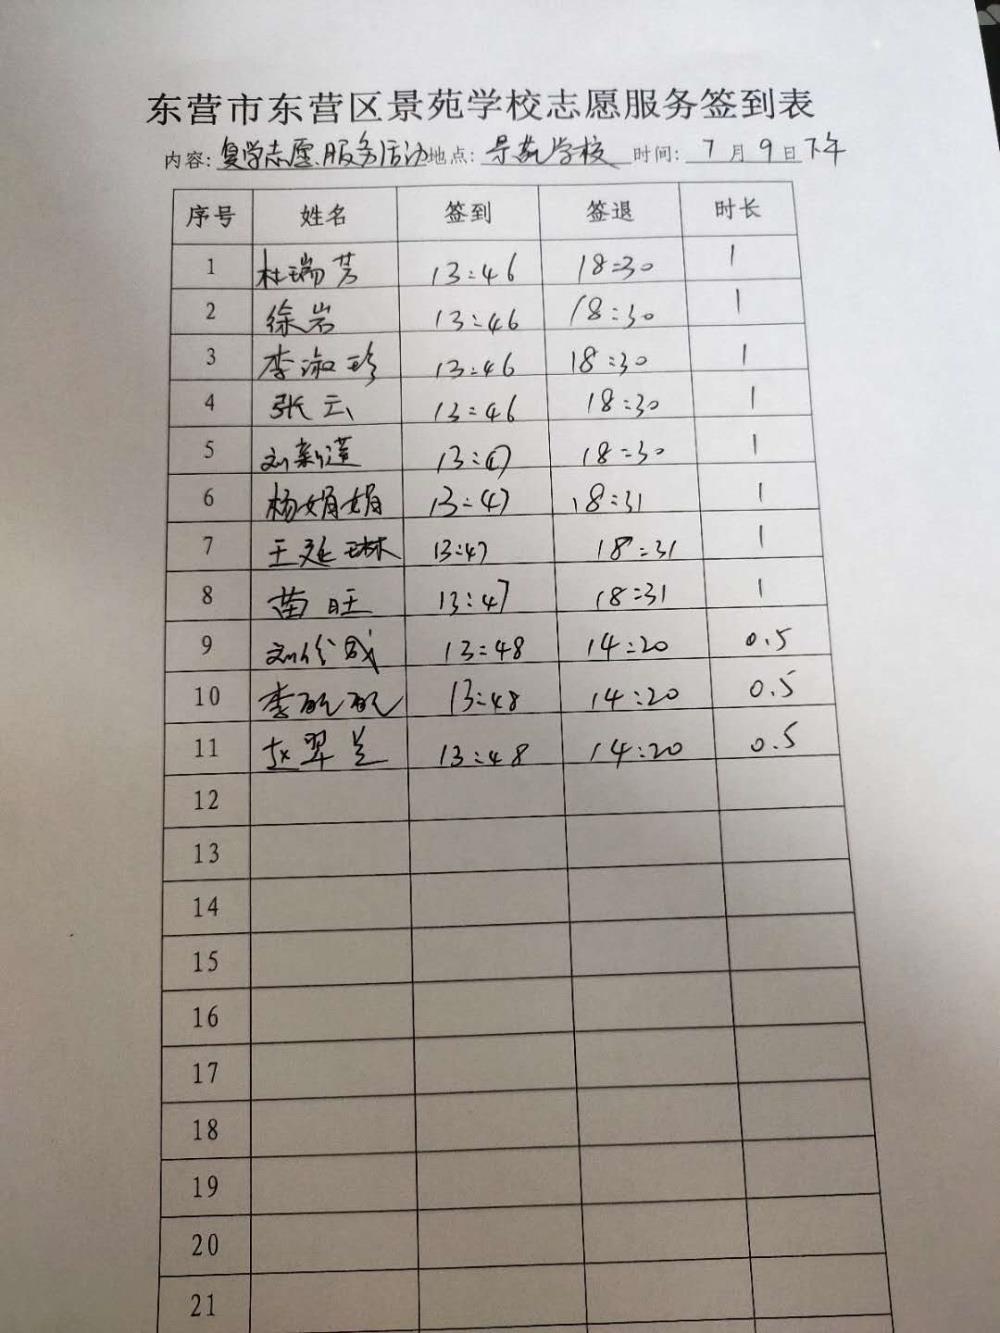 东营市东营区景苑学校志愿服务签到表
内容: 复学志愿服务活动 地点: 景苑学校 时间: 7月9日下午
序号 姓名 签到 签退 时长
1 杜瑞芳 13:46 18:30 1
2 徐岩 13:46 18:30 1
3 李淑珍 13:46 18:30 1
4 张云 13:46 18:30 1
5 刘新莲 13:47 18:30 1
6 杨娟娟 13:47 18:31 1
7 王延琳 13:47 18:31 1
8 苗旺 13:47 18:31 1
9 13:48 14:20 0.5
10 13:48 14:20 0.5
11 赵翠兰 13:48 14:20 0.5
12
13
14
15
16
17
18
19
20
21